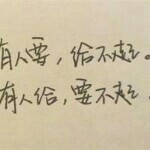 有人要，给不起。
有人给，要不起。